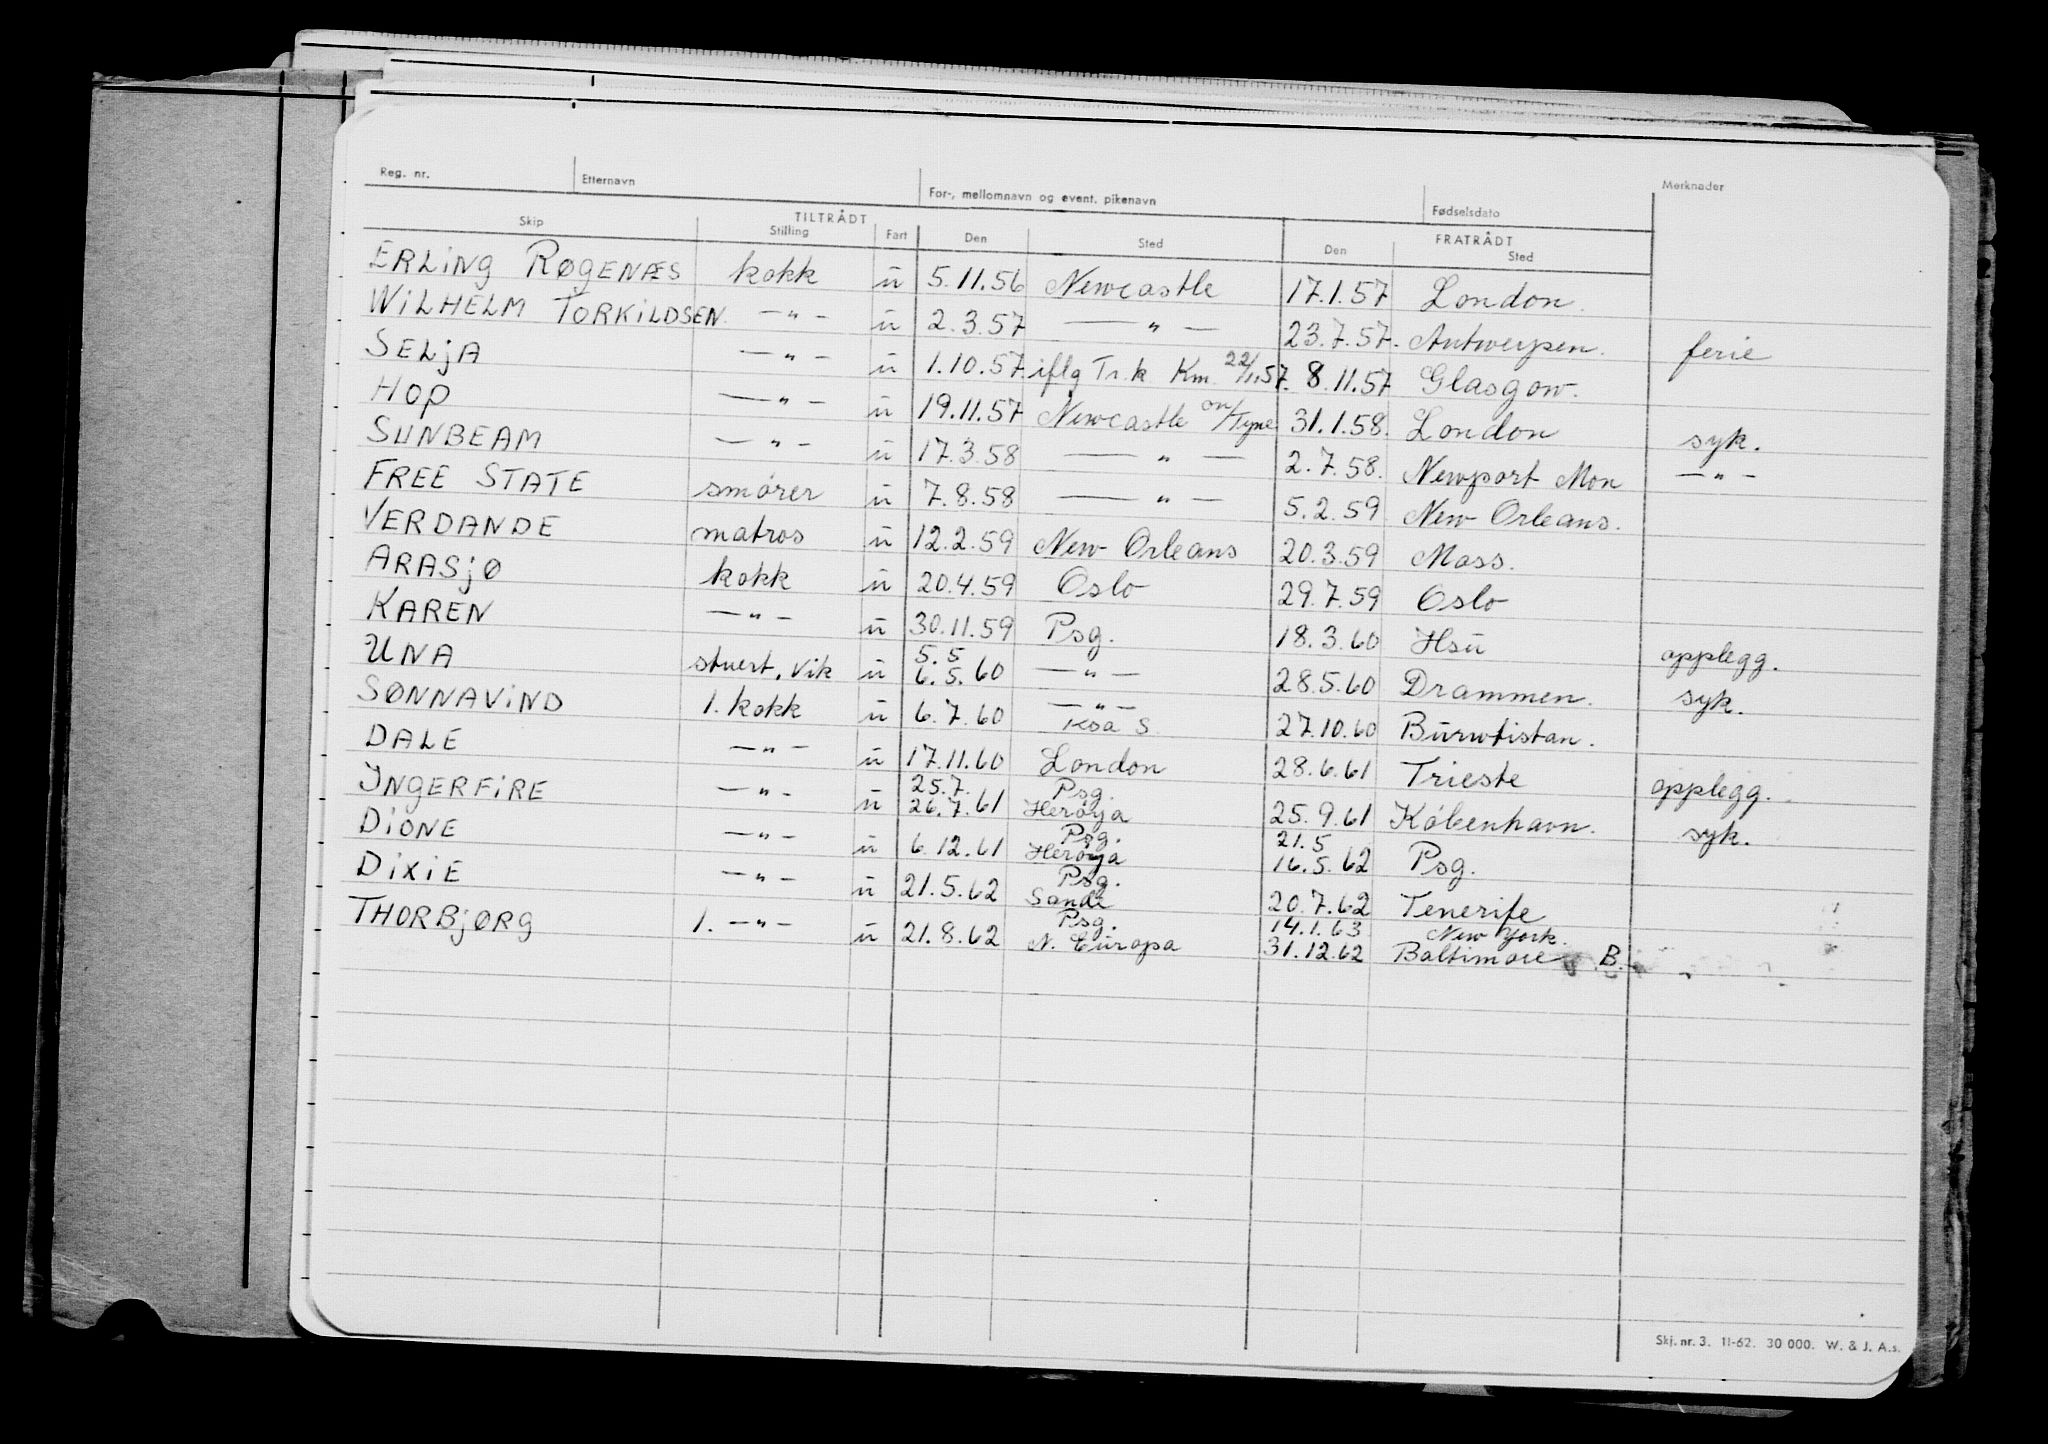 Reg. nr. Etternavn For-, mellomnavn og event. pikenavn Fødselsdato Merknader
TILTRÅDT FRATRÅDT
Skip Stilling Fart Den Sted Den Sted
ERLING RØGENÆS kokk u 5.11.56 Newcastle 17.1.57 London.
WILHELM TORKILDSEN —"— u 2.3.57 —"— 23.7.57. Antwerpen. ferie
SELJA —"— u 1.10.57 iflg Tr.k Km 22/11.57. 8.11.57 Glasgow.
HOP —"— u 19.11.57 Newcastle on/Tyne 31.1.58. London syk.
SUNBEAM —"— u 17.3.58 —"— 2.7.58. Newport Mon —"—
FREE STATE smører u 7.8.58 —"— 5.2.59 New Orleans.
VERDANDE matros u 12.2.59 New Orleans 20.3.59 Mass.
ARASJØ kokk u 20.4.59 Oslo 29.7.59 Oslo
KAREN —"— u 30.11.59 Psg. 18.3.60 Hsu opplegg.
UNA stuert, vik u 5.5 6.5.60 —"— 28.5.60 Drammen. syk.
SØNNAVIND 1. kokk u 6.7.60 —"— Ksa S. 27.10.60 Burntistan.
DALE —"— u 17.11.60 London 28.6.61 Trieste opplegg.
INGERFIRE —"— u 25.7. 26.7.61 Psg. Herøya 25.9.61 København. syk.
DIONE —"— u 6.12.61 Psg. Herøya 21.5 16.5.62 Psg.
DIXIE —"— u 21.5.62 Psg. Sande 20.7.62 Tenerife
THORBJØRG 1. —"— u 21.8.62 Psg. N. Europa 14.1.63 New York.
31.12.62 Baltimore B.
Skj. nr. 3. 11-62. 30 000. W. & J. A.s.